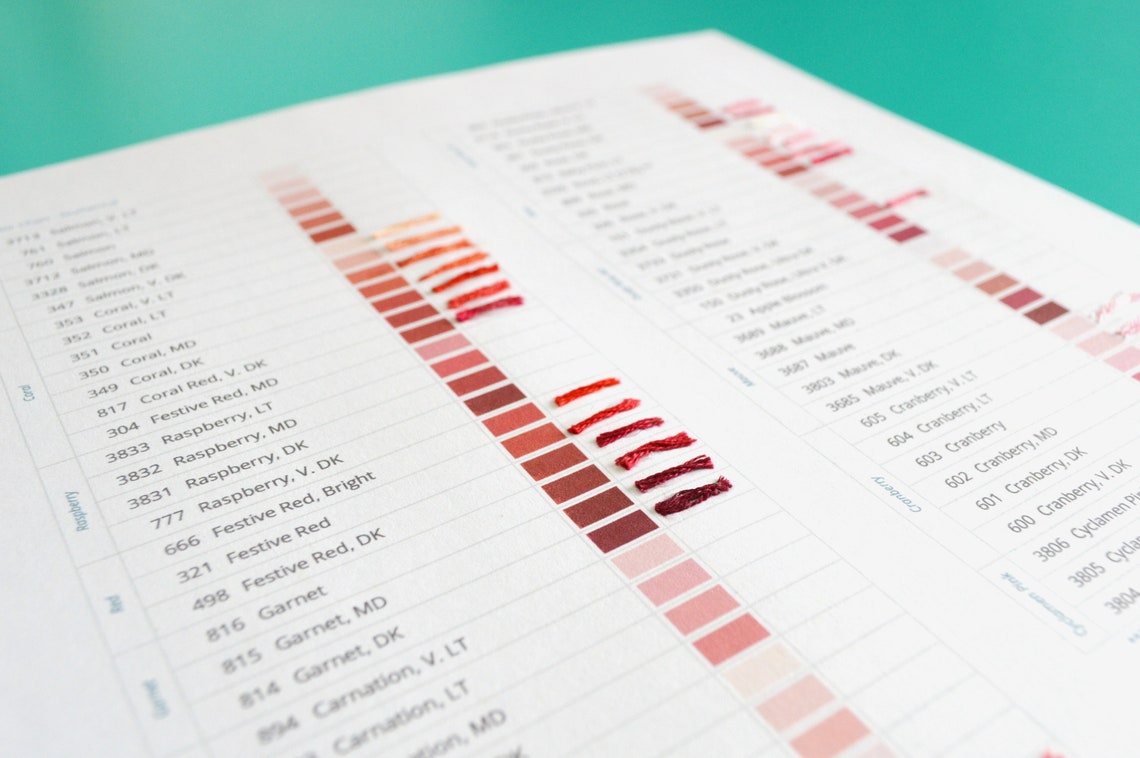 3713 Salmon, V. LT
761 Salmon, LT
760 Salmon
3712 Salmon, MD
3328 Salmon, DK
347 Salmon, V. DK
353 Coral, V. LT
352 Coral, LT
351 Coral
350 Coral, MD
349 Coral, DK
817 Coral Red, V. DK
304 Festive Red, MD
3833 Raspberry, LT
3832 Raspberry, MD
3831 Raspberry, DK
777 Raspberry, V. DK
666 Festive Red, Bright
321 Festive Red
498 Festive Red, DK
816 Garnet
815 Garnet, MD
814 Garnet, DK
894 Carnation, V. LT
Carnation, LT
MD
DK
Coral
Raspberry
Red
Garnet
Dusty Rose
3731 Dusty Rose, V. DK
3350 Dusty Rose, Ultra DK
150 Dusty Rose, Ultra V. DK
23 Apple Blossom
3689 Mauve, LT
3688 Mauve, MD
3687 Mauve
3803 Mauve, DK
3685 Mauve, V. DK
605 Cranberry, V. LT
604 Cranberry, LT
603 Cranberry
602 Cranberry, MD
601 Cranberry, DK
600 Cranberry, V. DK
3806 Cyclamen
3805
3804
Mauve
Cranberry
Cyclamen Pink